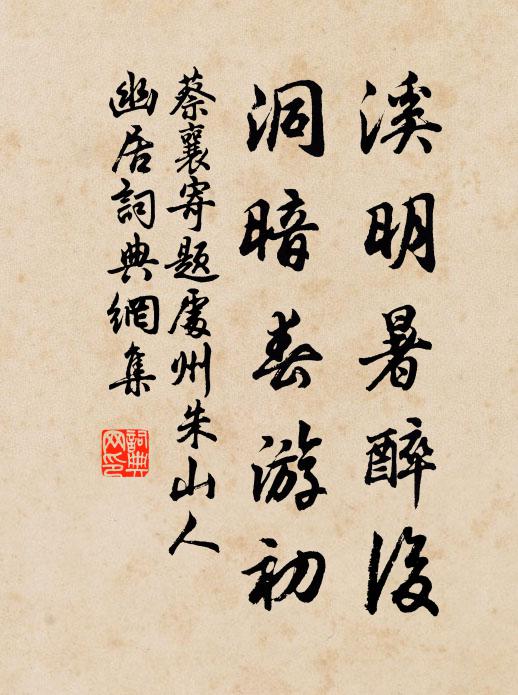 溪明暑醉後
洞暗春游初
蔡襄寄題處州朱山人
幽居詞典網集
詞典
网印